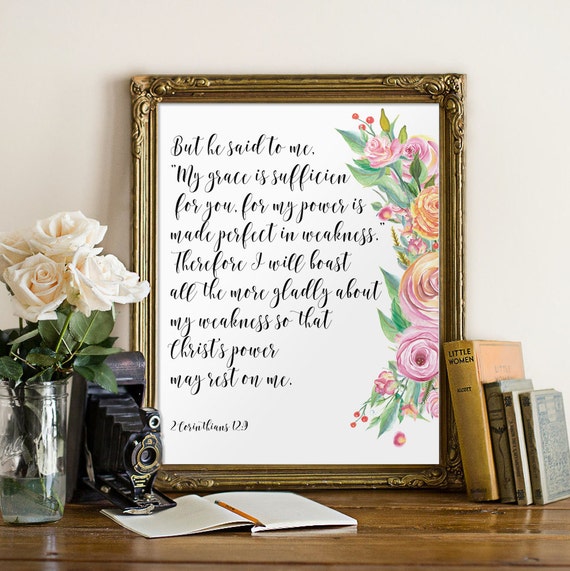 But he said to me,
"My grace is sufficien
for you, for my power is
made perfect in weakness."
Therefore I will boast
all the more gladly about
my weakness so that
Christ's power
may rest on me.
2 Corinthians 12:9
LITTLE
WOMEN